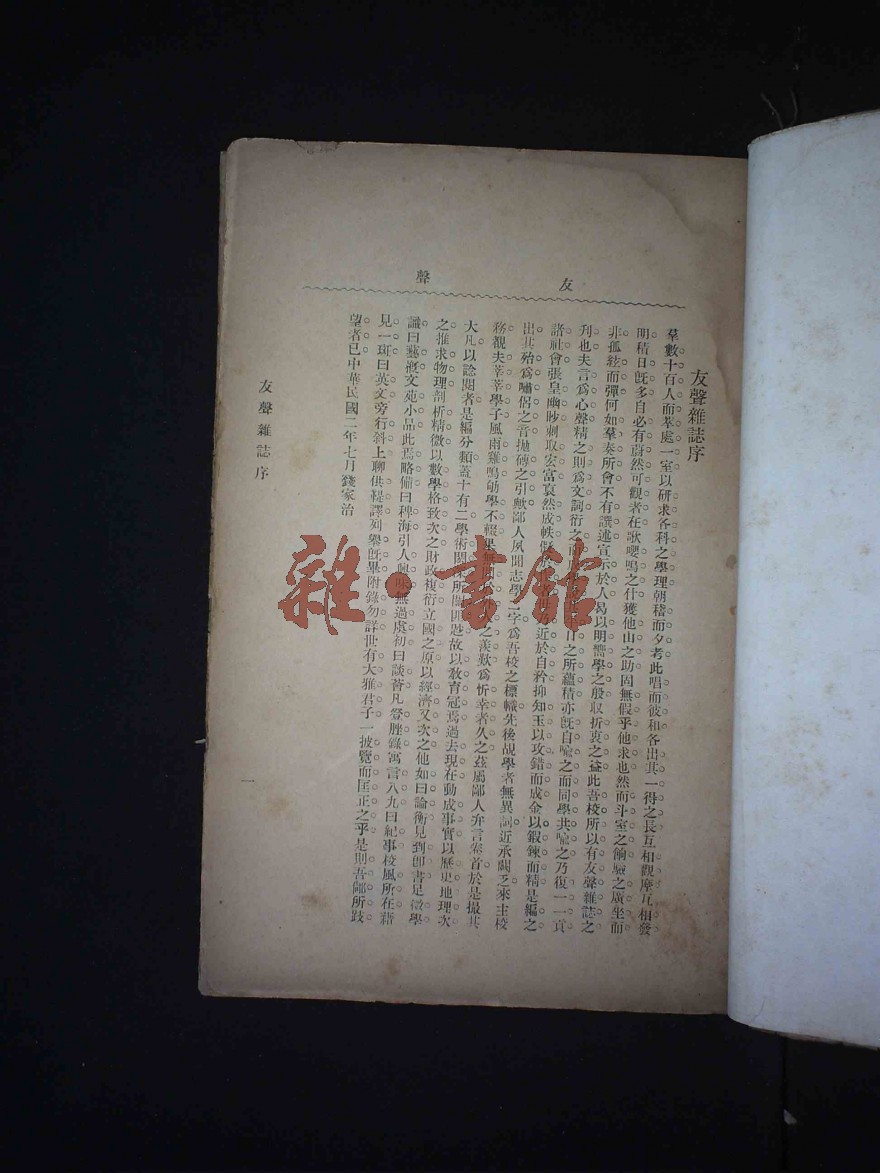 友聲
友聲雜誌序
羣數十百人而萃處一室以研求各科之學理朝稽而夕考此唱而彼和各出其一得之長互相觀摩互相發
明積日旣多自必有蔚然可觀者在歌嚶鳴之什獲他山之助固無假乎他求也然而斗室之喻驗之廣坐而
非孤絃而彈何如羣奏所會不有譔述宣示於人曷以明嚮學之殷収折衷之益此吾校所以有友聲雜誌之
刋也夫言爲心聲精之則爲文詞衍之而之所蘊積亦旣自喩之而同學共喩之乃復一一貢
諸社會張皇幽眇刺取宏富裒然成帙於近於自矜抑知玉以攻錯而成金以鍛鍊而精是編之
出其殆爲嚆侶之音抛磚之引歟鄙人夙聞志學二字爲吾校之標幟先後覘學者無異詞近承闕乏來主校
務覩夫莘莘學子風雨雞鳴劬學不輟果之羨歎爲忻幸者久之茲屬鄙人弁言卷首於是撮其
大凡以諗閱者是編分類蓋十有二學術閎深所關匪尠故以敎育冠焉過去現在動成事實以歷史地理次
之推求物理剖析精微以數學格致次之財政複衍立國之原以經濟又次之他如曰論衡見到卽書足徵學
識曰藝瀫文苑小品此焉略備曰稗海引人興味無過虞初曰談薈凡登脞錄寓言八九曰紀事校風所在藉
見一斑曰英文旁行斜上聊供鞮譯列擧旣畢附錄勿詳世有大雅君子一披覽而匡正之乎是則吾儕所跂
望者已中華民國二年七月錢家治
友聲雜誌序
一
雜·書館